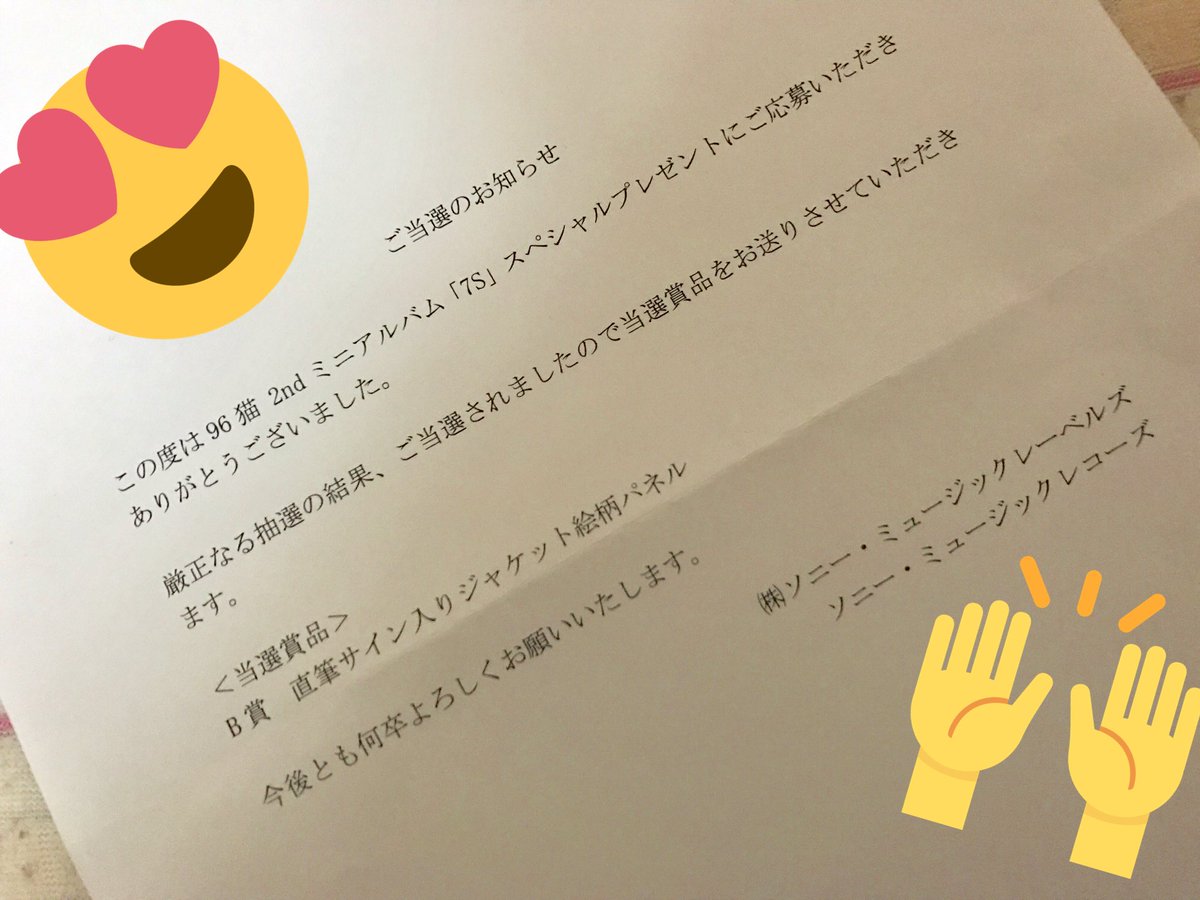 ご当選のお知らせ
この度は 96 猫 2nd ミニアルバム「7S」スペシャルプレゼントにご応募いただき
ありがとうございました。
厳正なる抽選の結果、ご当選されましたので当選賞品をお送りさせていただき
ます。
＜当選賞品＞
B 賞　直筆サイン入りジャケット絵柄パネル
今後とも何卒よろしくお願いいたします。
㈱ソニー・ミュージックレーベルズ
ソニー・ミュージックレコーズ